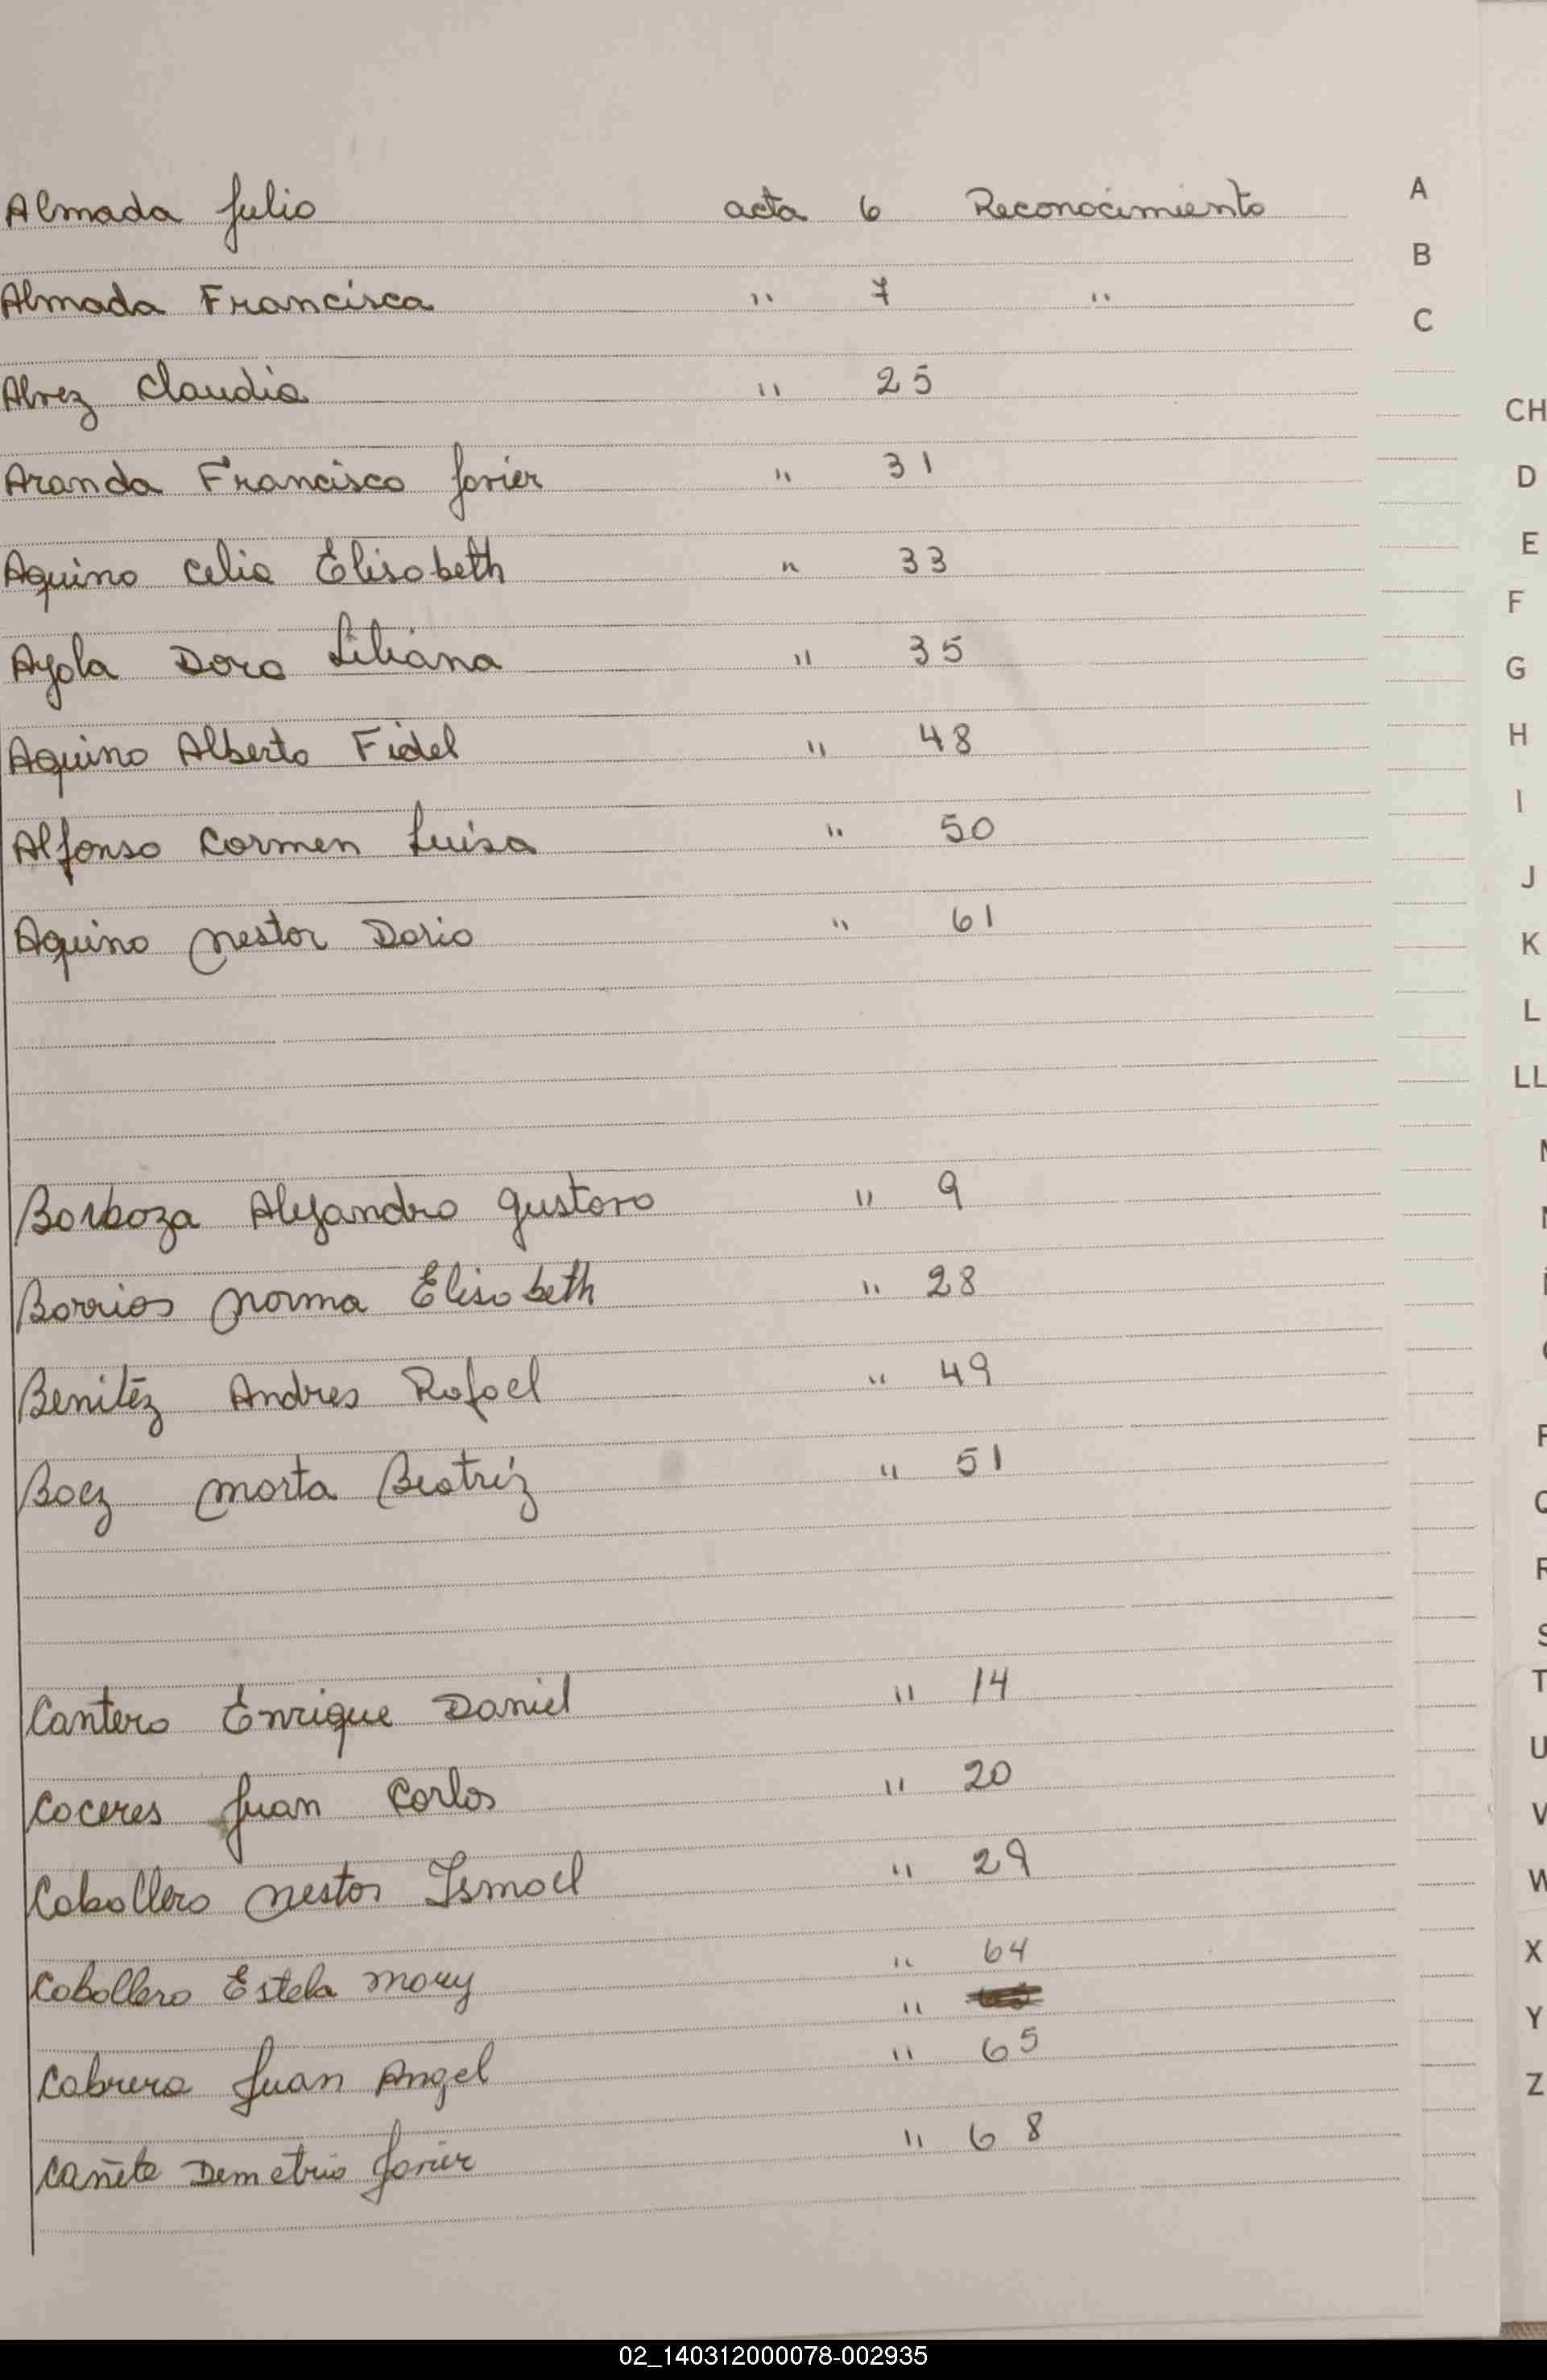 Almada Julio acta 6 Reconocimiento
Almada Francisca " 7 "
Alvez Claudia " 25
Aranda Francisco Javier " 31
Aquino Celia Elisabeth " 33
Ayala Dora Liliana " 35
Aquino Alberto Fidel " 48
Alfonso Carmen Luisa " 50
Aquino Nestor Dario " 61
Barboza Alejandro Gustavo " 9
Barrios Norma Elisabeth " 28
Benitez Andres Rafael " 49
Baez Marta Beatriz " 51
Cantero Enrique Daniel " 14
Caceres Juan Carlos " 20
Caballero Nestor Ismael " 29
Caballero Estela Mary " 64
"
Cabrera Juan Angel " 65
Cañete Demetrio Javier " 68
A
B
C
CH
D
E
F
G
H
I
J
K
L
LL
T
U
V
W
X
Y
Z
02_140312000078-002935